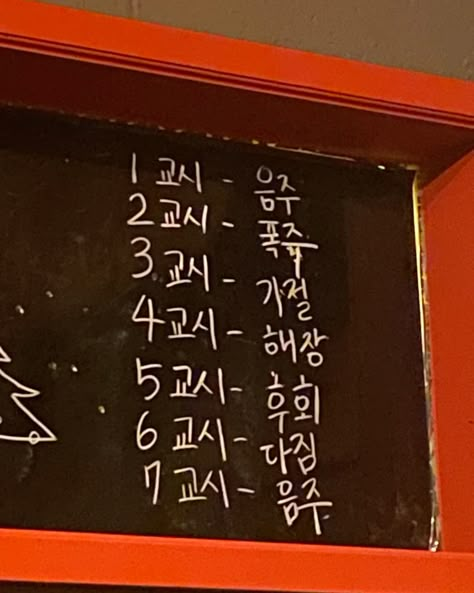 1교시 - 음주
2교시 - 폭주
3교시 - 기절
4교시 - 해장
5교시 - 후회
6교시 - 다짐
7교시 - 음주